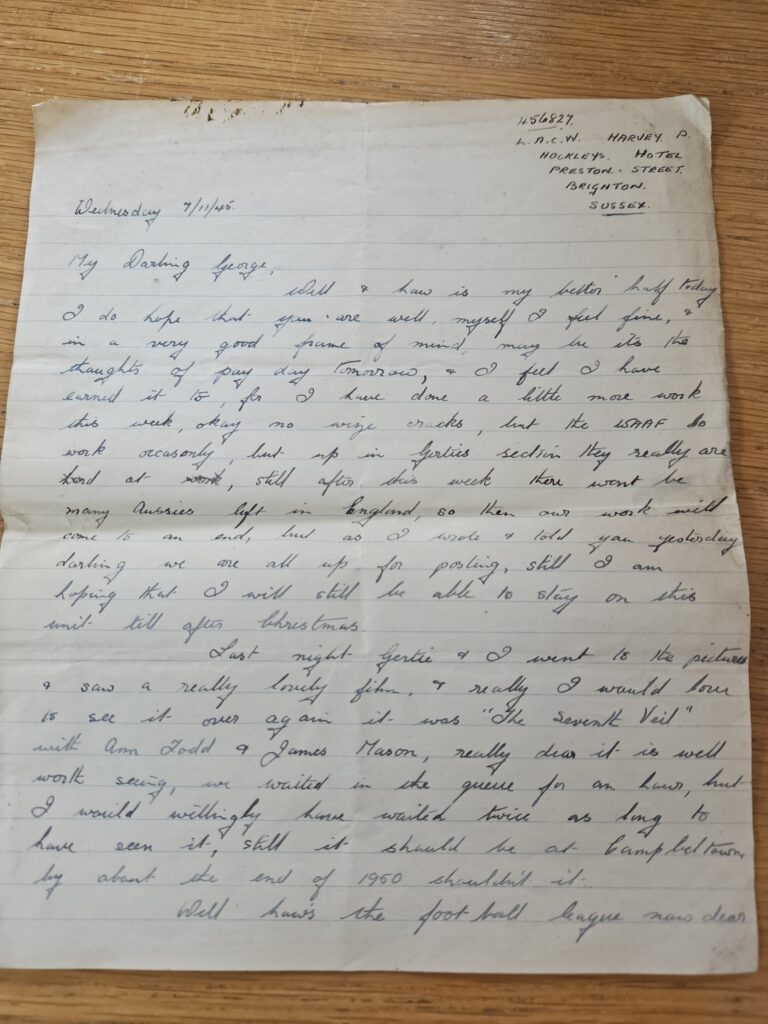 456827.
L.A.C.W. HARVEY. P.
HOCKLEYS. HOTEL
PRESTON. STREET.
BRIGHTON.
SUSSEX.
Wednesday 7/11/45.
My Darling George,
Well & how is my better half today
I do hope that you are well, myself I feel fine, &
in a very good frame of mind, may be it's the
thoughts of pay day Tomorrow, & I feel I have
earned it to, for I have done a little more work
this week, okay no wize cracks, but the WAAF do
work occasonly, but up in Gerties section they really are
hard at work, still after this week there wont be
many Aussies left in England, so then our work will
come to an end, but as I wrote & told you yesterday
darling we are all up for posting, still I am
hoping that I will still be able to stay on this
unit till after Christmas.
Last night Gertie & I went to the pictures
& saw a really lovely film, & really I would love
to see it over again it was "The Seventh Veil"
with Ann Todd & James Mason, really dear it is well
worth seeing, we waited in the queue for an hour, but
I would willingly have waited twice as long to
have seen it, still it should be at Campbeltown
by about the end of 1950 shouldn't it.
Well how's the foot ball league now dear